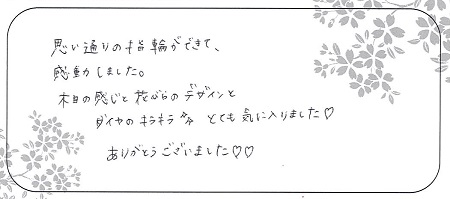 思い通りの指輪ができて、
感動しました。
木目の感じと花びらのデザインと
ダイヤのキラキラ✨ とても気に入りました♡
ありがとうございました♡♡